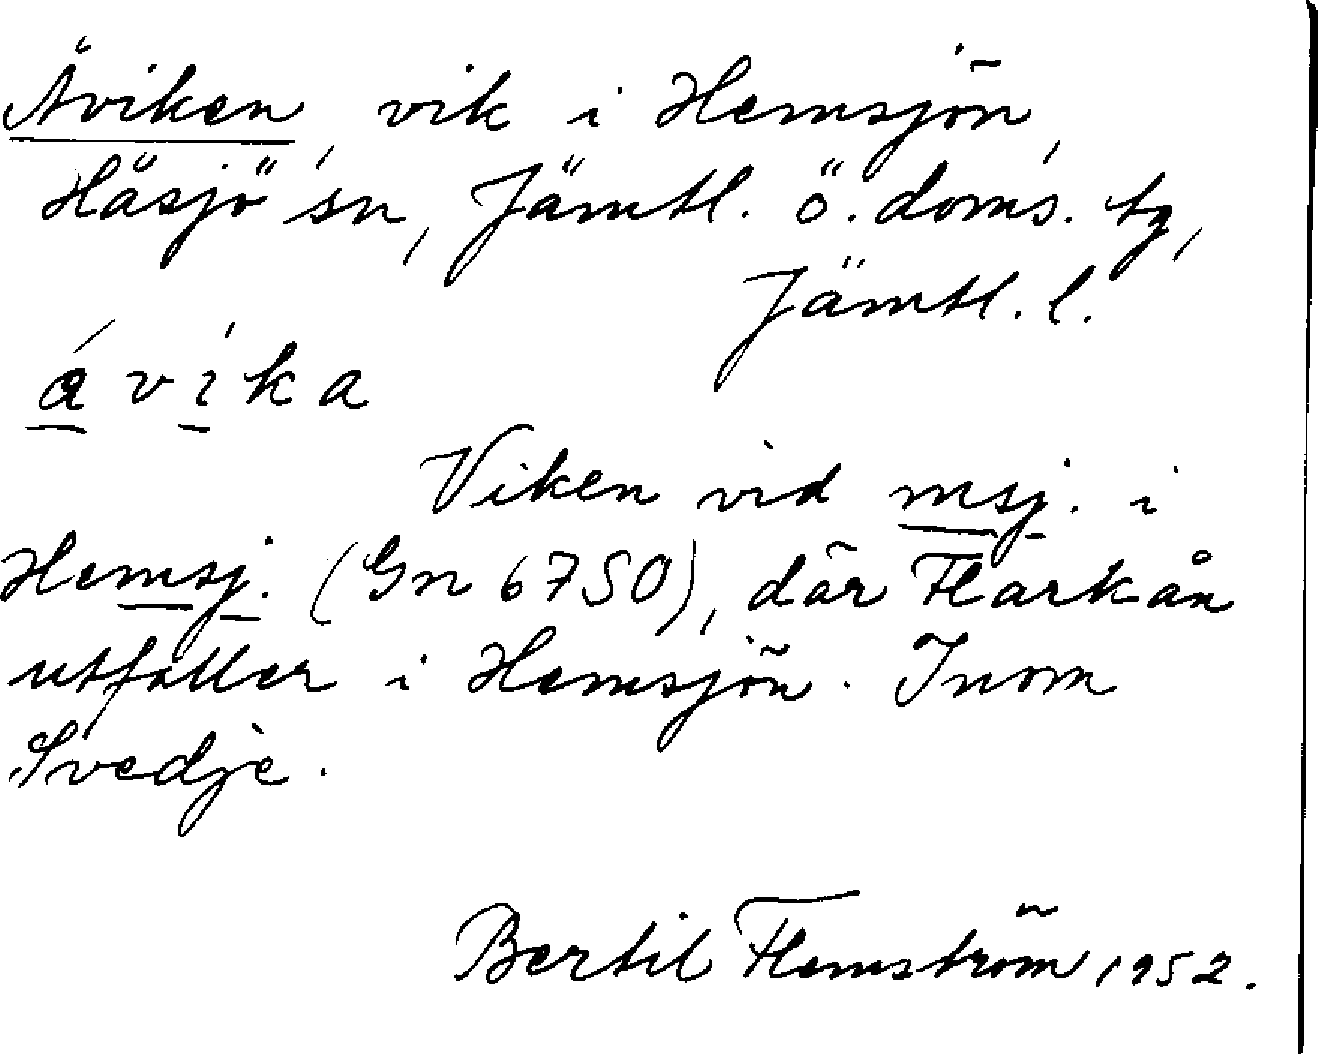 Åviken, vik i Hemsjön,
Håsjö sn, Jämtl. ö. doms. tg,
Jämtl. l.
á v í k a
Viken vid msj. i
Hemsj. (Gn 6750), där Flarkån
utfaller i Hemsjön. Inom
Svedje.
Bertil Flemström 1952.